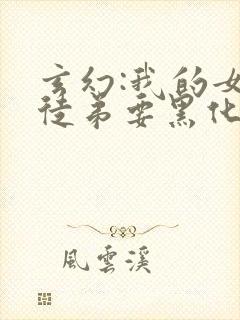 玄幻:我的女
徒弟要黑化
風雲溪